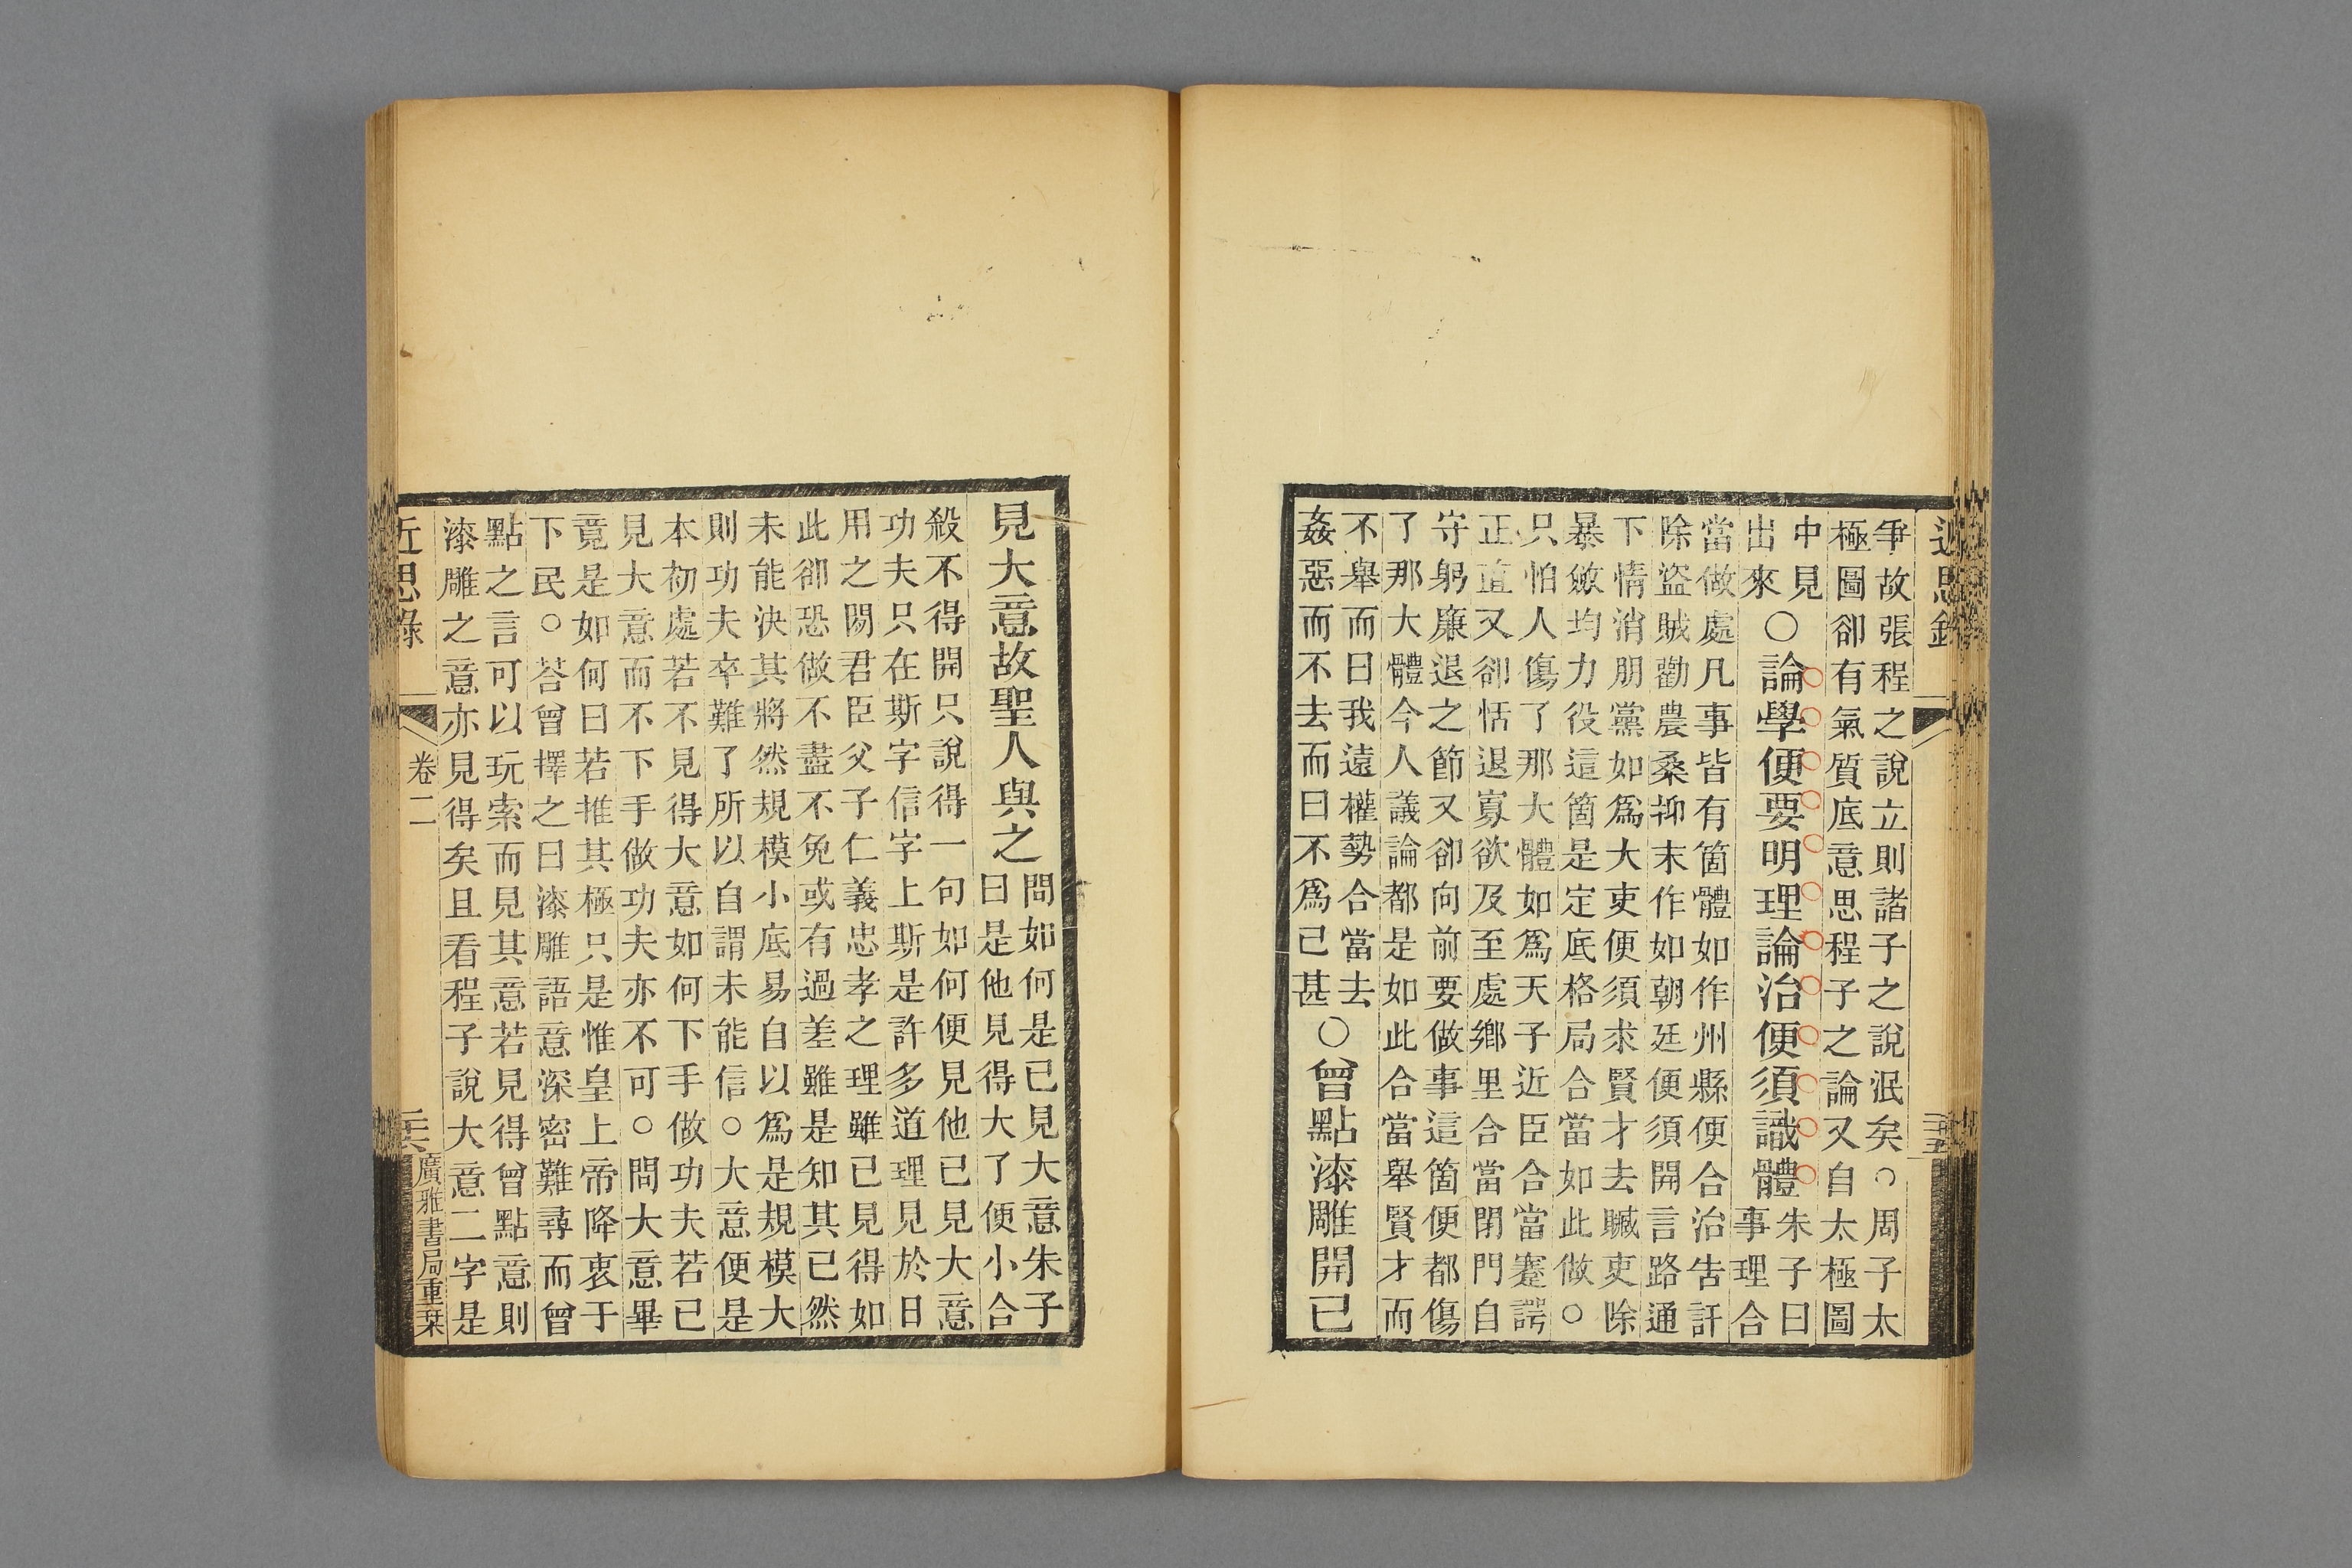 近思錄
爭故張程之說立則諸子之說泯矣○周子太
極圖卻有氣質底意思程子之論又自太極圖
中見
出來
○論學便要明理論治便須識體
朱子曰
事理合
當做處凡事皆有箇體如作州縣便合治吿訐
除盜賊勸農桑抑末作如朝廷便須開言路通
下情消朋黨如爲大吏便須求賢才去贓吏除
暴斂均力役這箇是定底格局合當如此做○
只怕人傷了那大體如爲天子近臣合當蹇諤
正直又卻恬退寡欲及至處鄉里合當閉門自
守躬廉退之節又卻向前要做事這箇便都傷
了那大體今人議論都是如此合當舉賢才而
不舉而曰我遠權勢合當去
姦惡而不去而曰不爲已甚
○曾點漆雕開已
見大意故聖人與之
問如何是已見大意朱子
曰是他見得大了便小合
殺不得開只說得一句如何便見他已見大意
功夫只在斯字信字上斯是許多道理見於日
用之閒君臣父子仁義忠孝之理雖已見得如
此卻恐做不盡不免或有過差雖是知其已然
未能決其將然規模小底易自以爲是規模大
則功夫卒難了所以自謂未能信○大意便是
本初處若不見得大意如何下手做功夫若已
見大意而不下手做功夫亦不可○問大意畢
竟是如何曰若推其極只是惟皇上帝降衷于
下民○荅曾擇之曰漆雕語意深密難尋而曾
點之言可以玩索而見其意若見得曾點意則
漆雕之意亦見得矣且看程子說大意二字是
近思錄
卷二
廣雅書局重栞